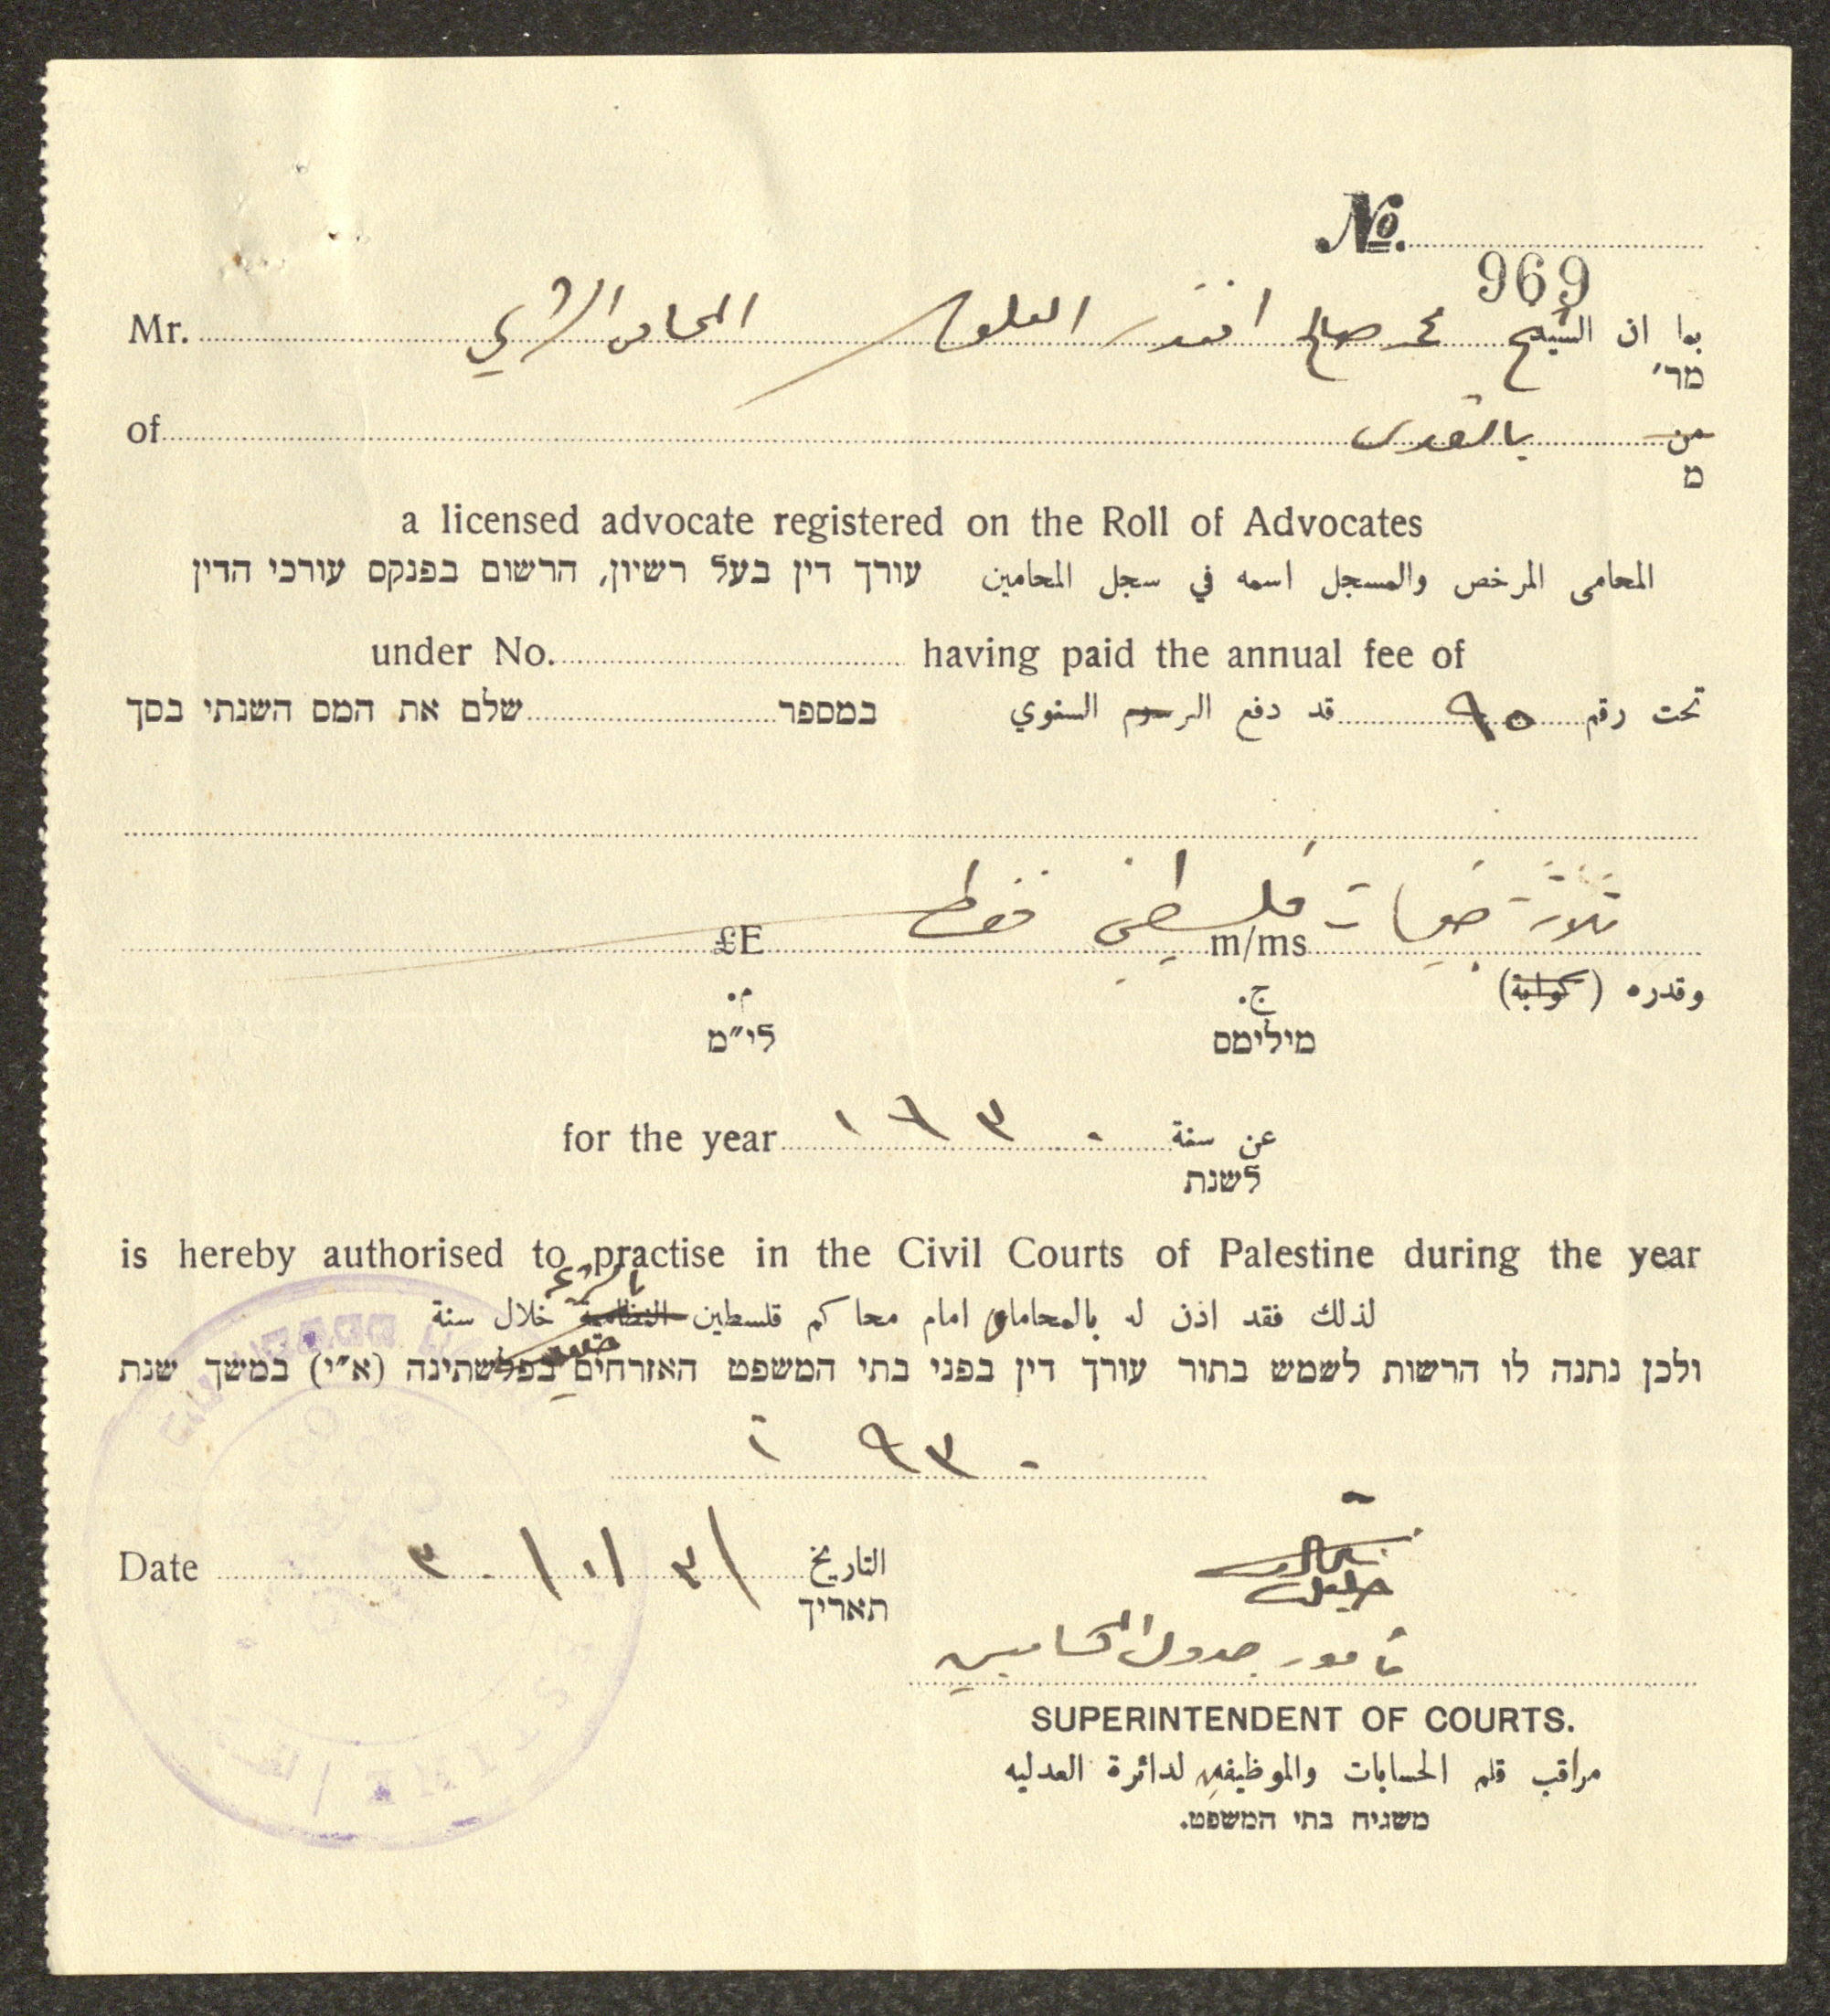 No.
969
Mr. بما ان الشيخ محمد صالح افندي المحامي الشرعي
מר׳
of من بالقدس
מ
a licensed advocate registered on the Roll of Advocates
المحامى المرخص والمسجل اسمه في سجل المحامين עורך דין בעל רשיון, הרשום בפנקס עורכי הדין
under No. having paid the annual fee of
تحت رقم ٩٥ قد دفع الرسوم السنوي במספר שלם את המס השנתי בסך
ثلاث جنيهات فلسطيني فقط
£E m/ms
وقدره (كتابة) ج. م.
מילימס לי״מ
for the year ١٩٣٠ عن سنة
לשנת
is hereby authorised to practise in the Civil Courts of Palestine during the year
بالشرعية
لذلك فقد اذن له بالمحاماة امام محاكم فلسطين النظامية خلال سنة
ולכן נתנה לו הרשות לשמש בתור עורך דין בפני בתי המשפט האזרחים בפלשתינה (א״י) במשך שנת
١٩٣٠
Date ٣١/١/٣٠ التاريخ
תאריך
مأمور جدول المحامين
SUPERINTENDENT OF COURTS.
مراقب قلم الحسابات والموظيفين لدائرة العدليه
משגיח בתי המשפט.